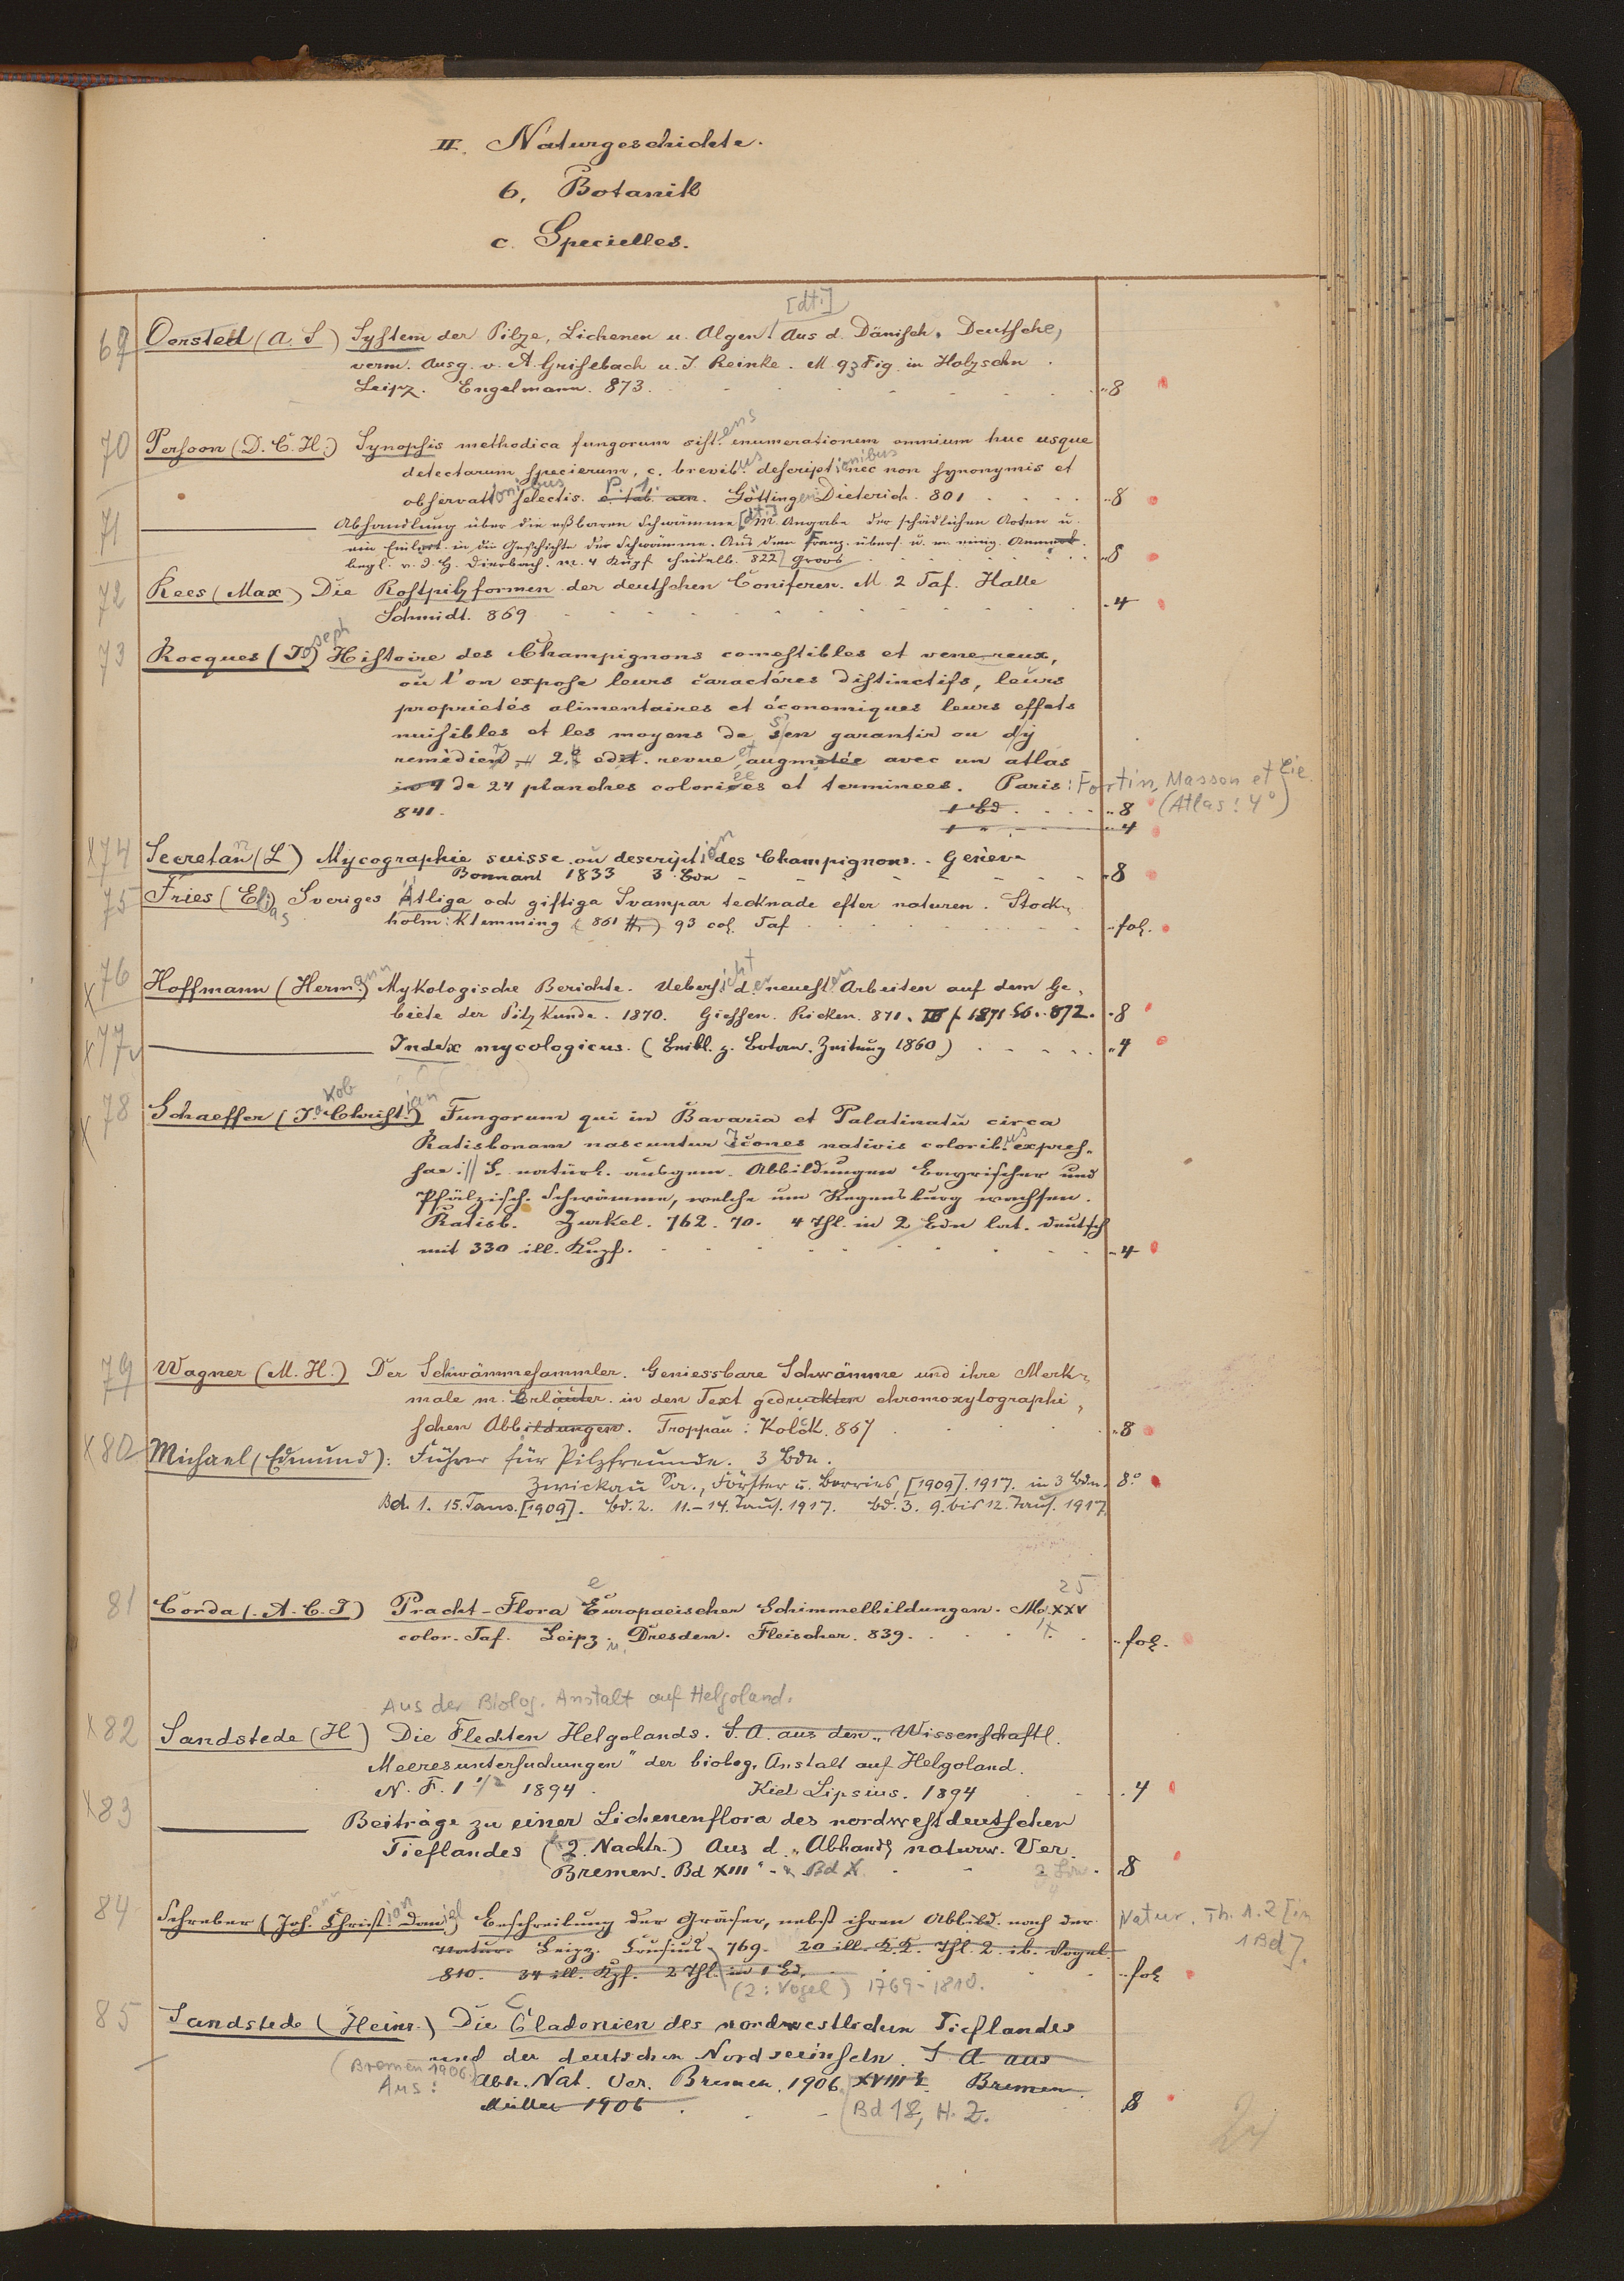 II. Naturgeschichte.
6, Botanik
c. Specielles.
[dt.]
69 Oersted (A. S) System der Pilze, Lichenen u. Algen! Aus d. Dänisch. Deutsche,
verm. Ausg. v. A Grisebach u. J. Reinke. M 93 Fig. in Holzschn.
Leipz. Engelmann. 873. 8
70 Persoon (D. C. H.) Synopsis methodica fungorum sist.ens enumerationem omnium huc usque
detectarum specierum, c. brevib.us descriptionibus nec non synonymis et
observationibus selectis. P. 1. c. tab. aen. Göttingen Dieterich. 801 8
71 Abhandlung über die eßbaren Schwämme [dt.] m. Angabe der schädlichen Arten u.
ein Einleit. in die Geschichte der Schwämme. Aus dem Franz. übers. u. m. einig. Anmerk.
begl. v. J. H. Dierbach. m. 4 Kupf Heidelb. 822 Groos 8
72 Rees (Max) Die Rostpilzformen der deutschen Coniferen. M. 2 Taf. Halle
Schmidt. 869 4
73 Rocques (Joseph) Histoire des Champignons comestibles et veneneux,
où l'on expose leurs caractéres distinctifs, leurs
proprietés alimentaires et économiques leurs effets
nuisibles et les moyens de s'en garantir ou d'y
remédier 2.e edit. revue et augmetée avec un atlas
in 4 de 24 planches coloriees et terminees. Paris: Fortin, Masson et Cie.
841. 1 Bd 8 (Atlas: 4°)
1 " 4
X 74 Secretan (L) Mycographie suisse ou description des Champignons. Genève
Bonnant 1833 3 Bde 8
75 Fries (Elias) Sveriges Ätliga och giftiga Svampar tecknade efter naturen. Stock-
holm: Klemming (861 ff.) 93 col. Taf fol.
X 76 Hoffmann (Hermann) Mykologische Berichte. Uebersicht der neuesten Arbeiten auf dem Ge-
biete der Pilzkunde. 1870. Giessen. Ricker. 871. III f. 1871. 872. 8
X 77 Index mycologicus. (Beibl. z. Botan. Zeitung 1860) 4
X 78 Schaeffer (Jakob Christian) Fungorum qui in Bavaria et Palatinatu circa
Ratisbonam nascuntur Icones nativis coloribus expres-
sae :// S. natürl. ausgem. Abbildungen Bayrischer und
Pfälzisch. Schwämme, welche um Regensburg wachsen.
Ratisb. Zunkel. 762. 70. 4 Thl. in 2 Bdn lat. deutsch
mit 330 ill. Kupf. 4
79 Wagner (M. H.) Der Schwämmesammler. Geniessbare Schwämme und ihre Merk-
male m. Erläuter. in den Text gedruckten chromoxylographi-
schen Abbildungen. Troppau: Kolck. 867 8
X 80 Michael (Edmund): Führer für Pilzfreunde. 3 Bdn.
Zwickau Sa., Förster u. Borries, [1909]. 1917. in 3 Bdn. 8°
Bd. 1. 15. Taus. [1909]. Bd. 2. 11.-14. Taus. 1917. Bd. 3. 9. bis 12. Taus. 1917.
81 Corda (A. C. J) Pracht-Flora Europaeischer Schimmelbildungen. M. XXV 25
color. Taf. Leipz. u. Dresden. Fleischer. 839. fol.
Aus der Biolog. Anstalt auf Helgoland.
X 82 Sandstede (H) Die Flechten Helgolands. S. A. aus den "Wissenschaftl.
Meeresuntersuchungen" der biolog. Anstalt auf Helgoland.
N. F. 1 1/2 1894. Kiel Lipsius. 1894 4
X 83 Beiträge zu einer Lichenenflora des nordwestdeutschen
Tieflandes (2. Nachtr.) Aus d. "Abhandl naturw. Ver.
Bremen. Bd XIII" - Bd X. 8
84 Schreber (Joh. Christian Daniel) Beschreibung der Gräser, nebst ihren Abbild. nach der Natur. Th. 1. 2 [in
1 Bd].
Natur. Leipz. Crusius 769. 20 ill. K.K. Thl. 2. ib. Vogel
810. 34 ill. Kpf. 2 Thl. in 1 Bd. fol
(2: Vogel) 1769-1810.
85 Sandstede (Heinr.) Die Cladonien des nordwestlichen Tieflandes
und der deutschen Nordseeinseln. S. A aus
(Bremen 1906.)
Aus: Abh. Nat. Ver. Bremen. 1906. XVIII 2. Bremen.
Müller 1906 (Bd 18, H. 2. 8
24